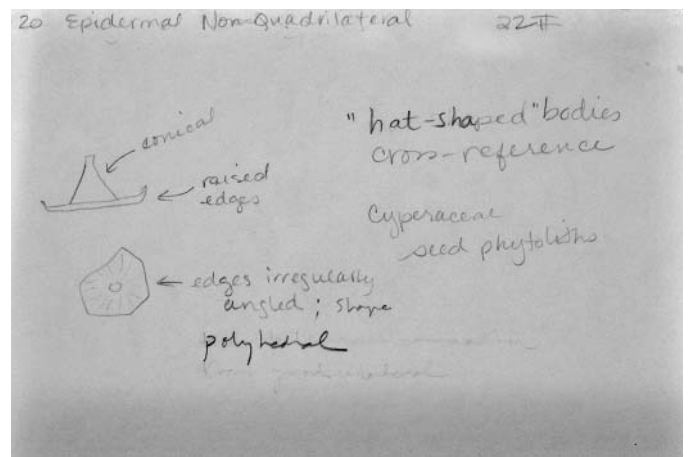 20 Epidermal Non-Quadrilateral 22II
conical
raised
edges
"hat-shaped" bodies
cross-reference
Cyperaceae
seed phytoliths
edges irregularly
angled; shape
polyhedral
from